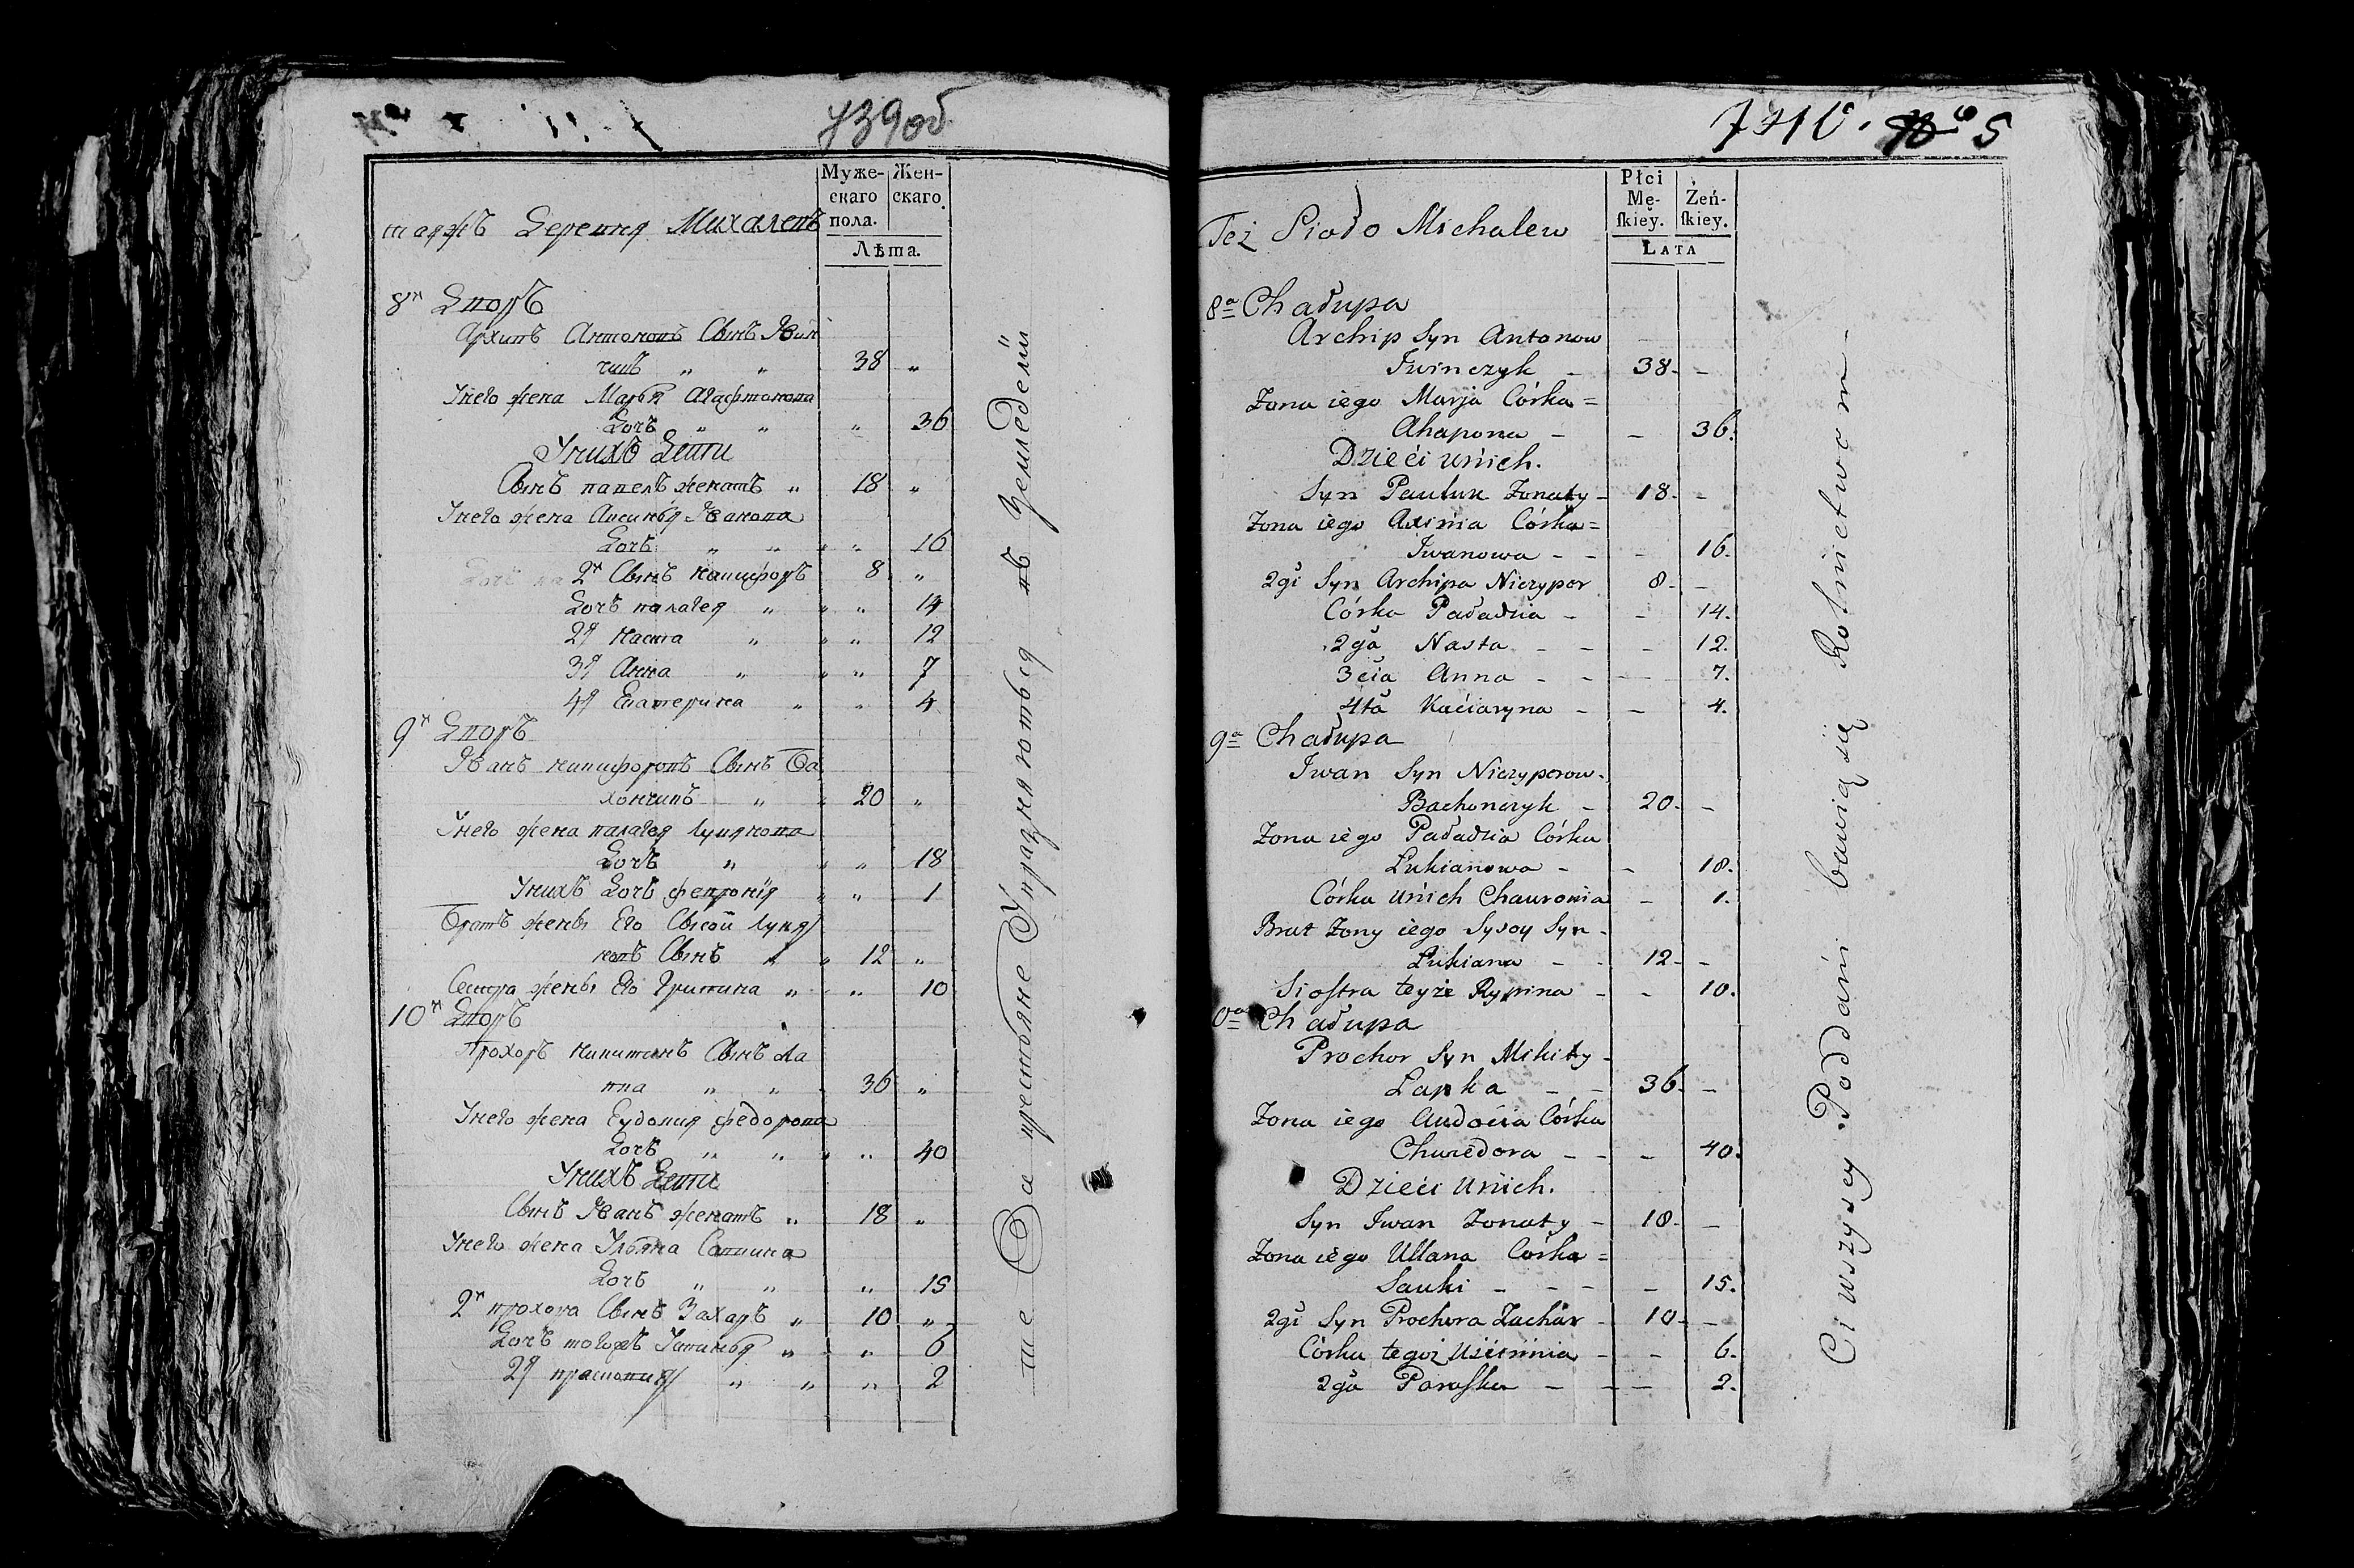 739об
Муже-
скаго
пола.
Жен-
скаго.
Лѣта.
таяжъ Деревня Михалевъ
8й Дворъ
Архипъ Антоновъ Сынъ Ивин
чикъ „ „ 38 „
Унего жена Марья Агафонова
Дочь „ „ „ 36
Унихъ Дети
Сынъ павелъ женатъ „ 18 „
Унего жена Аксинья Иванова
Дочь „ „ „ „ 16
2й Сынъ никифоръ 8 „
Дочь палагея „ „ „ 14
2я Наста „ „ „ 12
3я Анна „ „ „ 7
4я Екатерина „ „ 4
9й Дворъ
Иванъ никифоровъ Сынъ Ба
хончикъ „ „ 20 „
Унего жена палагея Лукянова
Дочь „ „ „ 18
Унихъ Дочь февронія „ „ 1
Братъ жены Его Сысой Лукя
новъ Сынъ „ „ 12 „
Сестра жены Его Иритина „ „ 10
10й Дворъ
Прохоръ никитинъ Сынъ Ла
пка „ „ „ 36 „
Унего жена Евдокия федорова
Дочь „ „ „ „ 40
Унихъ Дети
Сынъ Иванъ женатъ „ 18 „
Унего жена Ульяна Саввина
Дочь „ „ „ 15
2й прохора Сынъ Захаръ „ 10 „
Дочь тогожъ Устинья „ „ 6
2я прасковия „ „ „ 2
те Ва крестьяне Упражняются въ Земледелии
5
Płci
Mę-
skiey.
Żeń-
skiey.
LATA
Też Sioło Michalew
8a Chałupa
Archip Syn Antonow
Iwinczyk – 38 –
Zona iego Marja Córka =
Ahapona – – 36.
Dzieći unich.
Syn Pauluk Zonaty – 18 –
Zona iego Axinia Córka =
Iwanowa – – – 16.
2gi Syn Archipa Niczypor 8 –
Córka Paładzia – – 14.
2gà Nasta – – – 12.
3cia Anna – – – 7.
4tà Kaciaryna – – 4.
9a Chałupa
Iwan Syn Niczyporow
Bachonczyk – 20 –
Zona iego Paładzia Córka
Lukianowa – – 18.
Córka unich Chauronia – 1.
Brat Zony iego Sysoy Syn –
Lukiana – – 12 –
Siostra teyże Rypina – – 10.
0a Chałupa
Prochor Syn Mikity –
Lapka – – 36 –
Zona iego Audocia Córka
Chwiedora – – – 40.
Dzieći unich.
Syn Iwan Zonaty – 18 –
Zona iego Ullana Córka =
Sauki – – – – 15.
2gi Syn Prochora Zachar – 10 –
Córka tegoż Uściimia – – 6.
2gà Paraska – – – 2.
Ci wszyscy Poddani bawią się Rolnictwem –